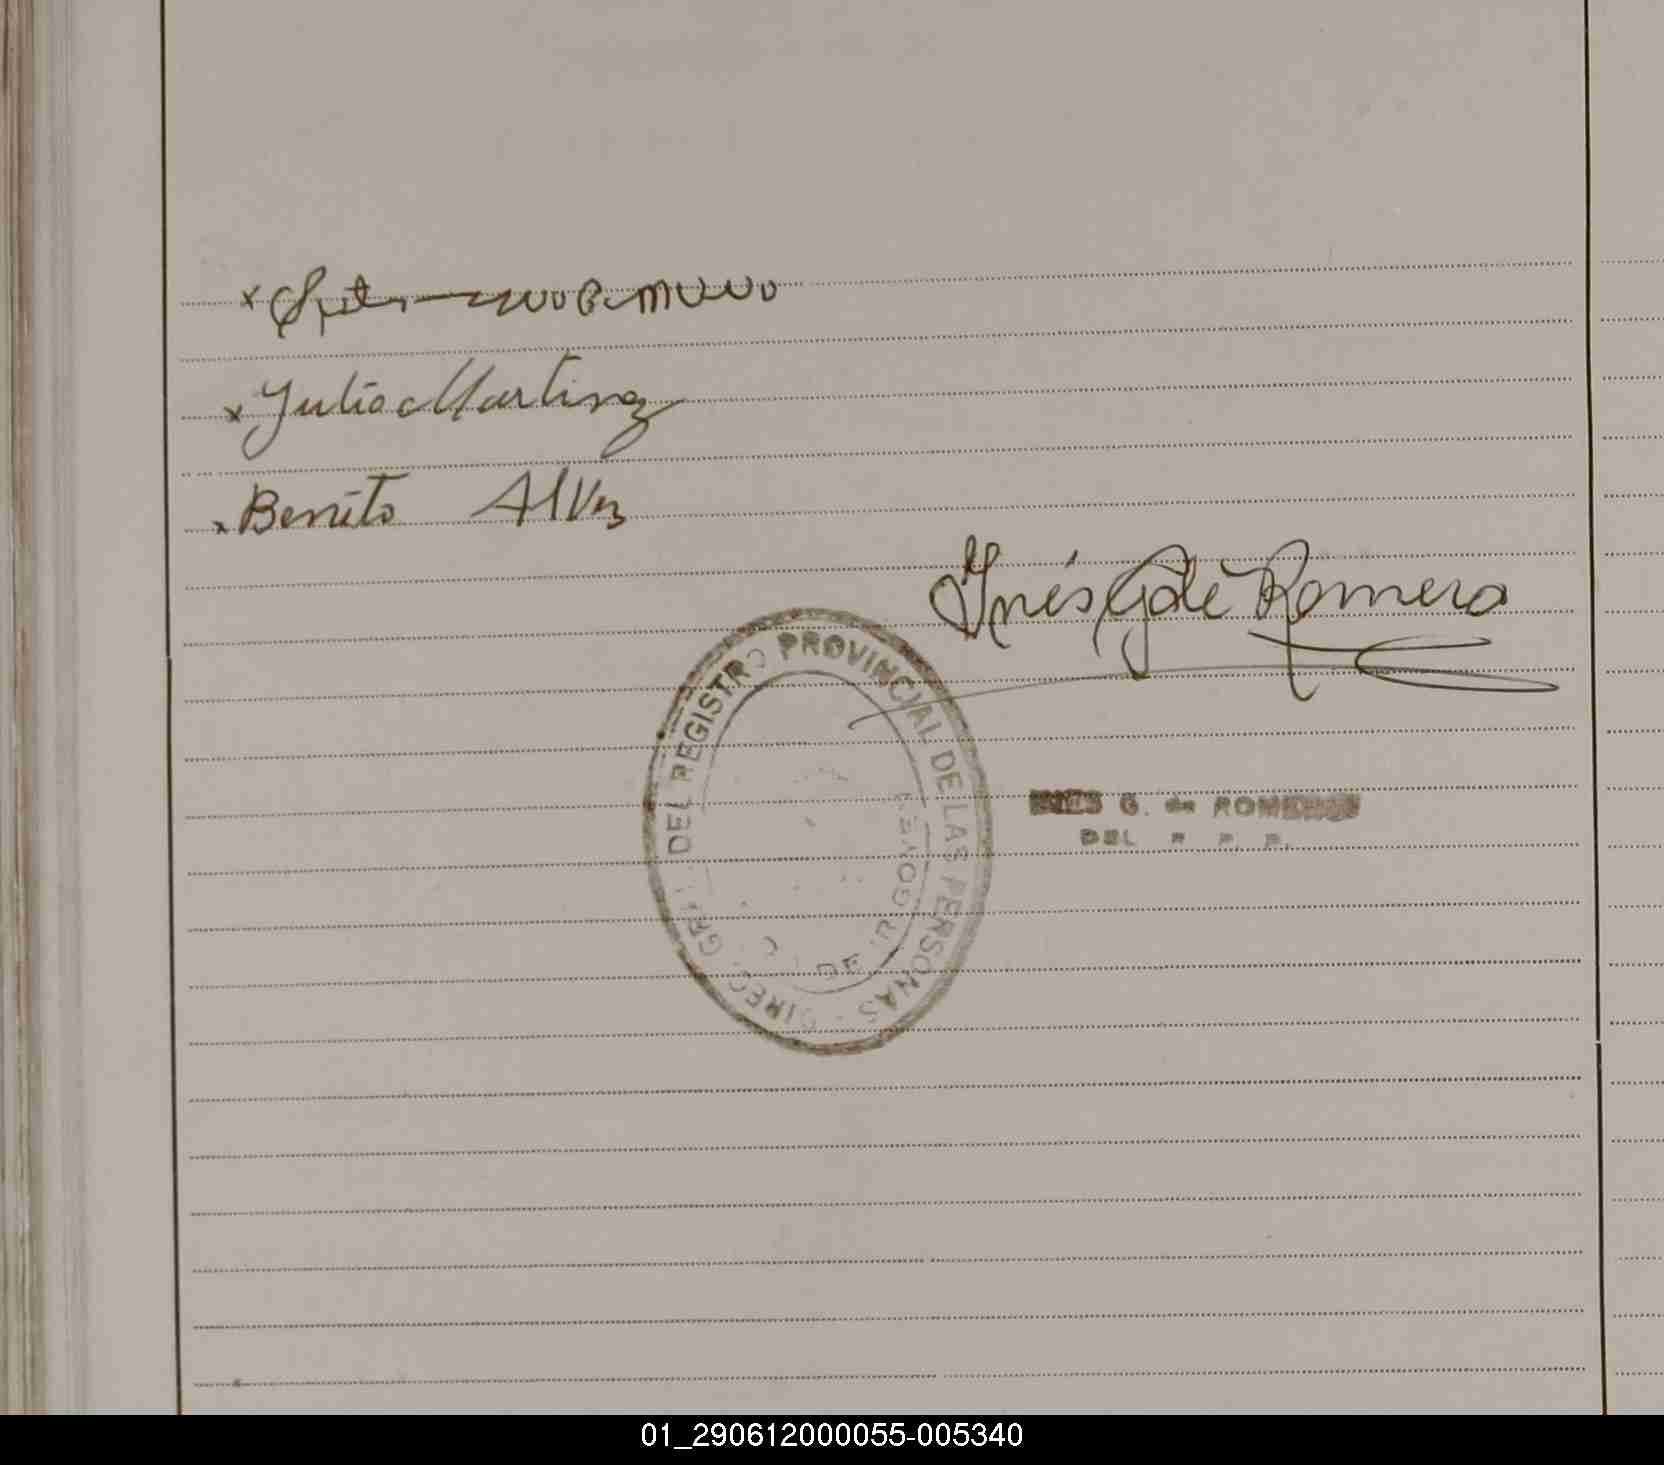 x
x Julio Martinez
x Benito Alvez
Inés G de Romero
DIREC. GRAL. DEL REGISTRO PROVINCIAL DE LAS PERSONAS
INES G. de ROMERO
DEL R. P. P.
01_290612000055-005340